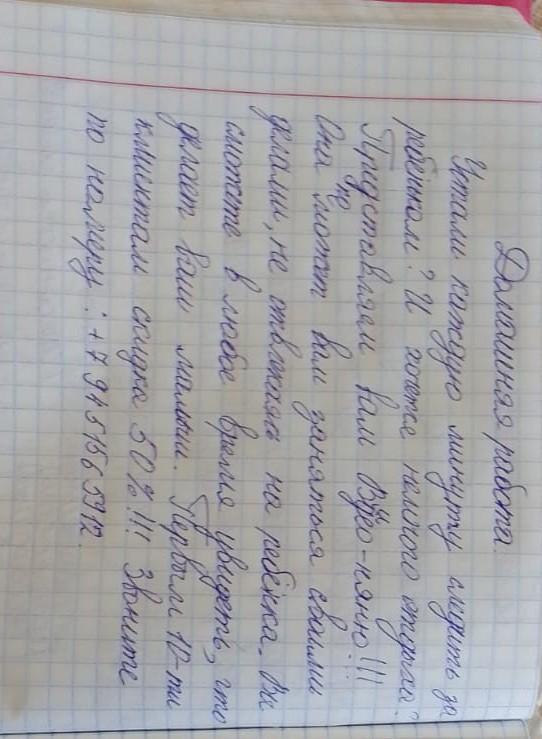 Домашняя работа.
Устали каждую минуту следить за
ребёнком? И хотже немного отдыха?
Представляем вам Видео-няню!!!
Она поможет вам заняться своими
делами, не отвлекаясь на ребёнка. Вы
сможете в любое время увидеть, что
делает ваш малыш. Первым 10-ти
клиентам скидка 50%!!! Звоните
по номеру: +79451565912.